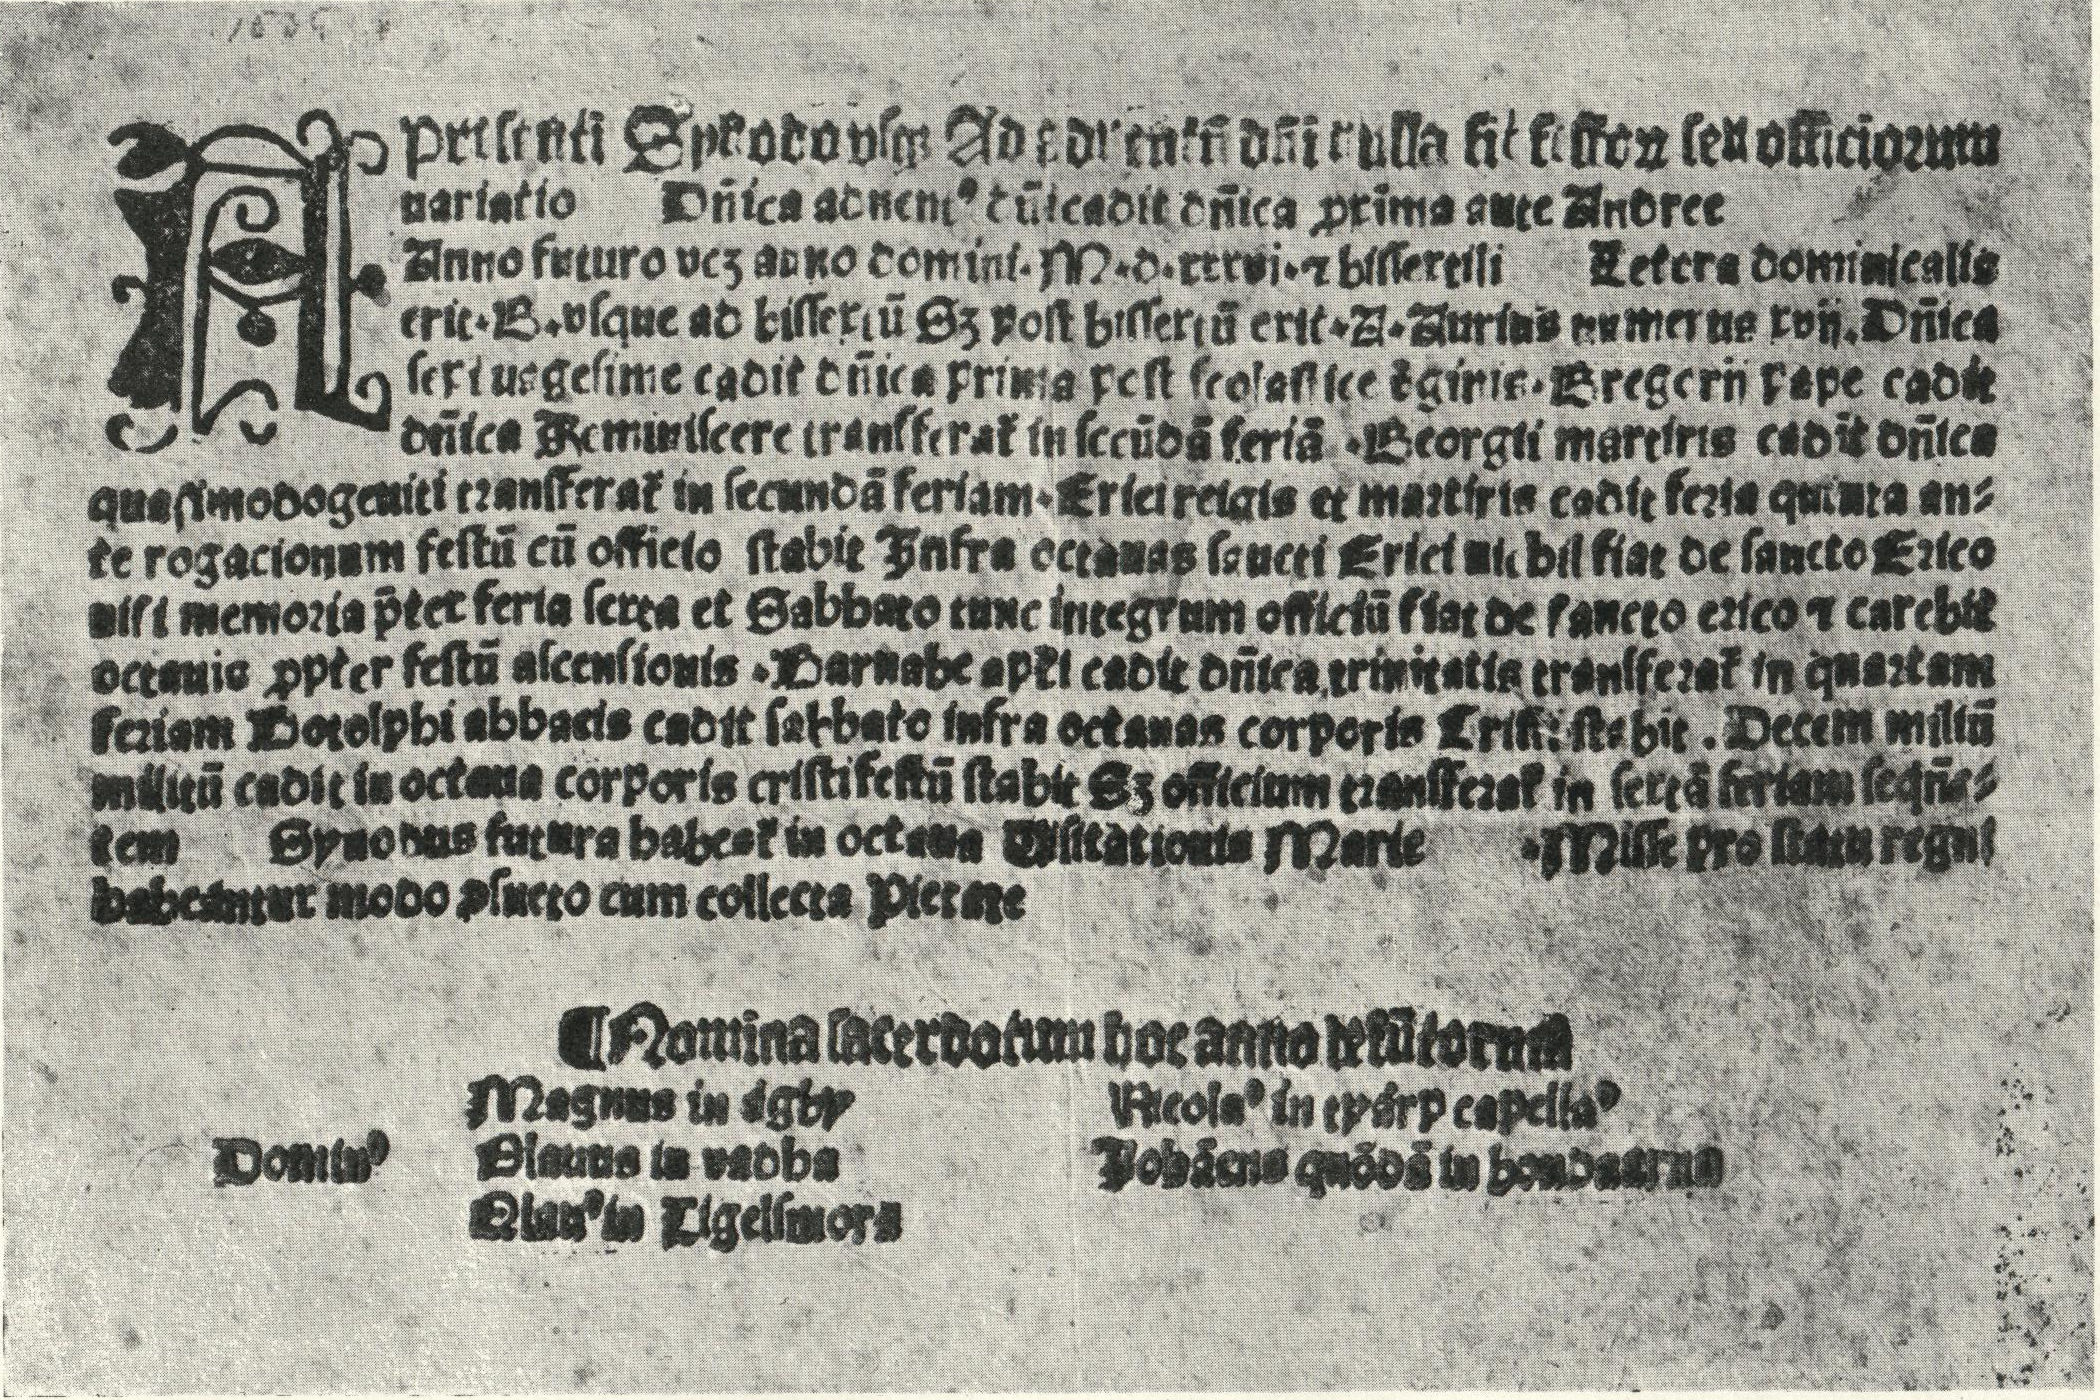 A presenti Synodo vsqꝫ Ad aduentū dn̄i nulla fit festoꝝ seu officiorum
uariatio Dn̄ica aduentꝰ dn̄i cadit dn̄ica prima ante Andree
Anno futuro vcꝫ anno domini. M.d.xxxvi.⁊ bissextili Letera dominicalis
erit.B.vsque ad bissextū Sꝫ post bissextū erit.A.Aurius numerus xvij.Dn̄ica
septuagesime cadit dn̄ica prima post scolastice v̄ginis.Gregorii pape cadit
dn̄ica Reminiscere transferat᷑ in secūdā feriā .Georgii martiris cadit dn̄ica
quasimodogeniti transfferat᷑ in secundā feriam.Erici reigis et martiris cadit feria quinta an⸗
te rogacionum festū cū officio stabit Infra octauas sancti Erici nichil fiat de sancto Erico
nisi memoria p̄ter feria sexta et Sabbato tunc integrum officiū fiat de sancto erico ⁊ carebit
octauis ꝓpter festū ascensionis .Barnabe apl̄i cadit dn̄ica trinitatis transfferat᷑ in quartam
feriam Botolphi abbatis cadit sabbato infra octauas corporis Cristi stabit . Decem miliū
militū cadit in octaua corporis cristi festū stabit Sꝫ officium transfferat᷑ in sextā feriam seqn̄⸗
tem Synodus futura habeat᷑ in octaua Visitationis Marie .Misse pro statu regni
habeantur modo ꝯsueto cum collecta Pietate
¶Nomina sacerdotum hoc anno defūctorum
Magnus in ägby Nicolaꝰ in capellaꝰ
Dominꝰ Olauus in vadba Johānes quōdā in
Olauꝰ in Tigelsmora